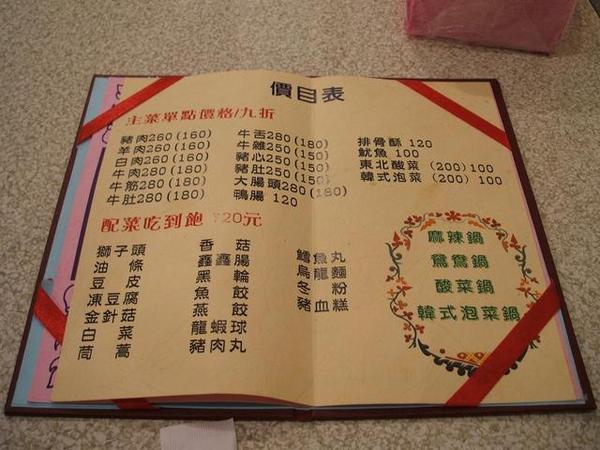 價目表
主菜單點價格/九折
豬肉260(160)
羊肉260(160)
白肉260(160)
牛肉280(180)
牛筋280(180)
牛肚280(180)
牛舌280(180)
牛雜250(150)
豬心250(150)
豬肚250(150)
大腸頭280(180)
鴨腸 120
排骨酥 120
魷魚 100
東北酸菜 (200)100
韓式泡菜 (200) 100
配菜吃到飽 120元
獅子頭
油條
豆皮
凍豆腐
金針菇
白菜
茼蒿
香菇
鑫鑫腸
黑輪
魚餃
燕餃
龍蝦球
豬肉丸
鱈魚丸
烏龍麵
冬粉
豬血糕
麻辣鍋
鴛鴦鍋
酸菜鍋
韓式泡菜鍋